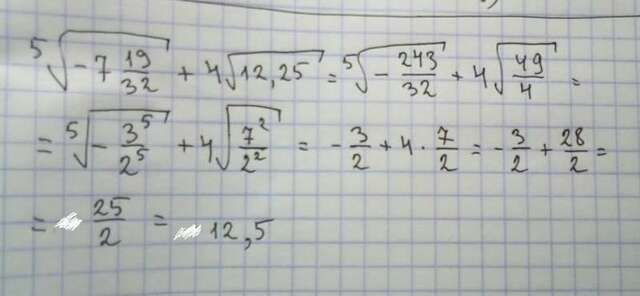 ⁵√(-7 19/32) + 4√12,25 = ⁵√(-243/32) + 4√(49/4) =
= ⁵√(-3⁵/2⁵) + 4√(7²/2²) = -3/2 + 4 · 7/2 = -3/2 + 28/2 =
= 25/2 = 12,5